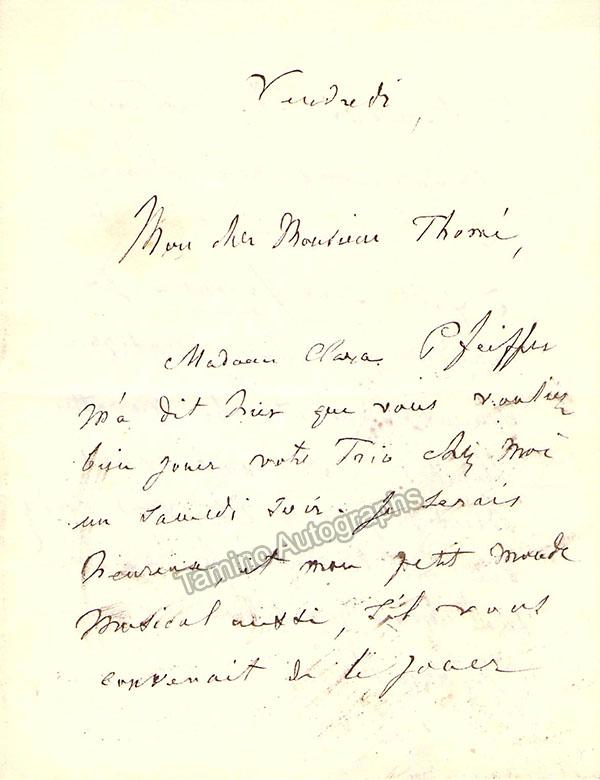 Vendredi,
Mon cher Monsieur Thomé,
Madame Clara Pfeiffer
m'a dit hier que vous vouliez
bien jouer votre Trio chez moi
un samedi soir. Je serais
heureux, et mon petit monde
musical aussi, s'il vous
convenait de le jouer
Tamino Autographs